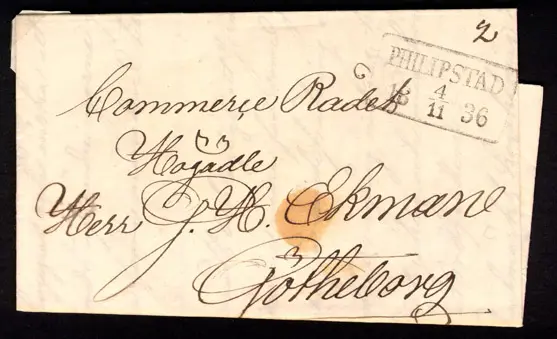 2
PHILIPSTAD
18 4/11 36
Commerce Rådet
Högädle
Herr J. H. Ekman
Götheborg